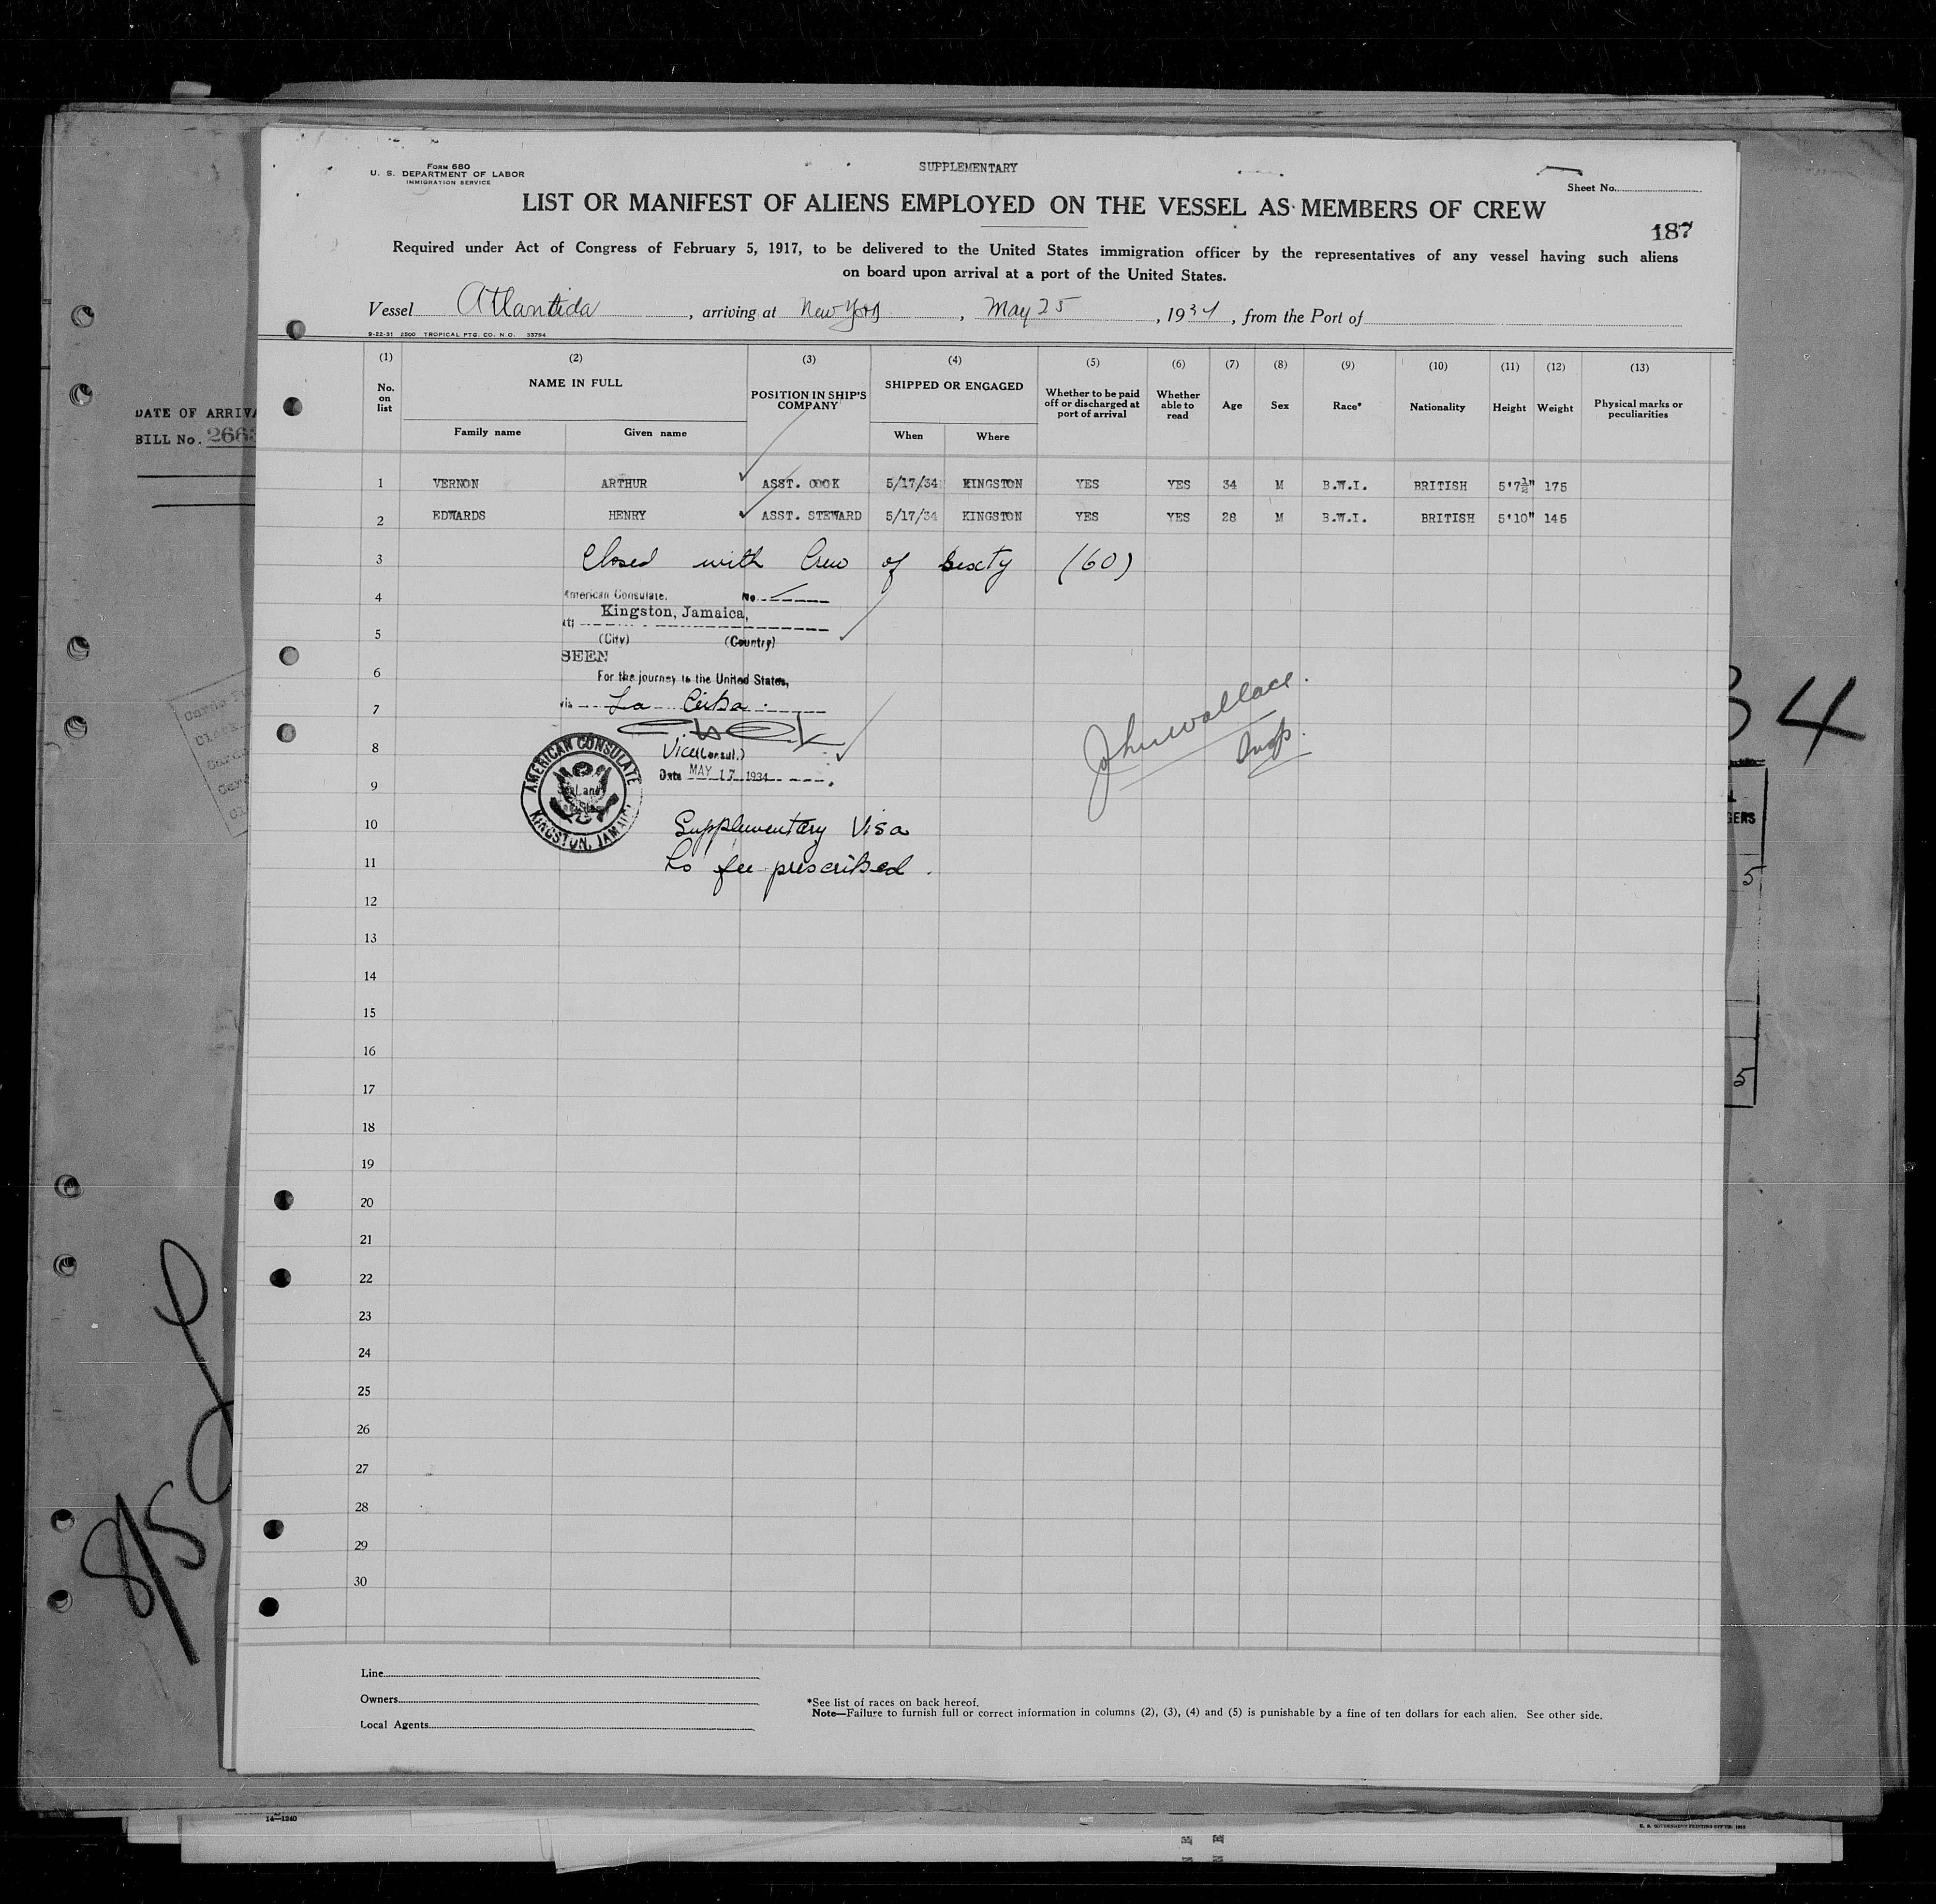 Form 680
U. S. DEPARTMENT OF LABOR
IMMIGRATION SERVICE
SUPPLEMENTARY
Sheet No.
LIST OR MANIFEST OF ALIENS EMPLOYED ON THE VESSEL AS MEMBERS OF CREW
187
Required under Act of Congress of February 5, 1917, to be delivered to the United States immigration officer by the representatives of any vessel having such aliens
on board upon arrival at a port of the United States.
Vessel Atlantida, arriving at New York, May 25, 1934, from the Port of
9-22-31 2500 TROPICAL PTG. CO. N.O. 33794
DATE OF ARRIVA
BILL No. 266
(1) (2) (3) (4) (5) (6) (7) (8) (9) (10) (11) (12) (13)
No. on list NAME IN FULL POSITION IN SHIP'S COMPANY SHIPPED OR ENGAGED Whether to be paid off or discharged at port of arrival Whether able to read Age Sex Race* Nationality Height Weight Physical marks or peculiarities
Family name Given name When Where
1 VERNON ARTHUR ASST. COOK 5/17/34 KINGSTON YES YES 34 M B.W.I. BRITISH 5'7½" 175
2 EDWARDS HENRY ASST. STEWARD 5/17/34 KINGSTON YES YES 28 M B.W.I. BRITISH 5'10" 145
3 Closed with Crew of Sixty (60)
4 American Consulate. No.
Kingston, Jamaica,
5 (City) (Country)
SEEN
6 For the journey to the United States,
7 via La Ceiba.
8 Vice Consul.)
Date MAY 17 1934
AMERICAN CONSULATE
KINGSTON, JAMAICA
John Wallace.
Insp.
9
10 Supplementary Visa
11 No fee prescribed.
12
13
14
15
16
17
18
19
20
21
22
23
24
25
26
27
28
29
30
34
GERS
5
5
8/5
Line
Owners
Local Agents
*See list of races on back hereof.
Note—Failure to furnish full or correct information in columns (2), (3), (4) and (5) is punishable by a fine of ten dollars for each alien. See other side.
14—1240